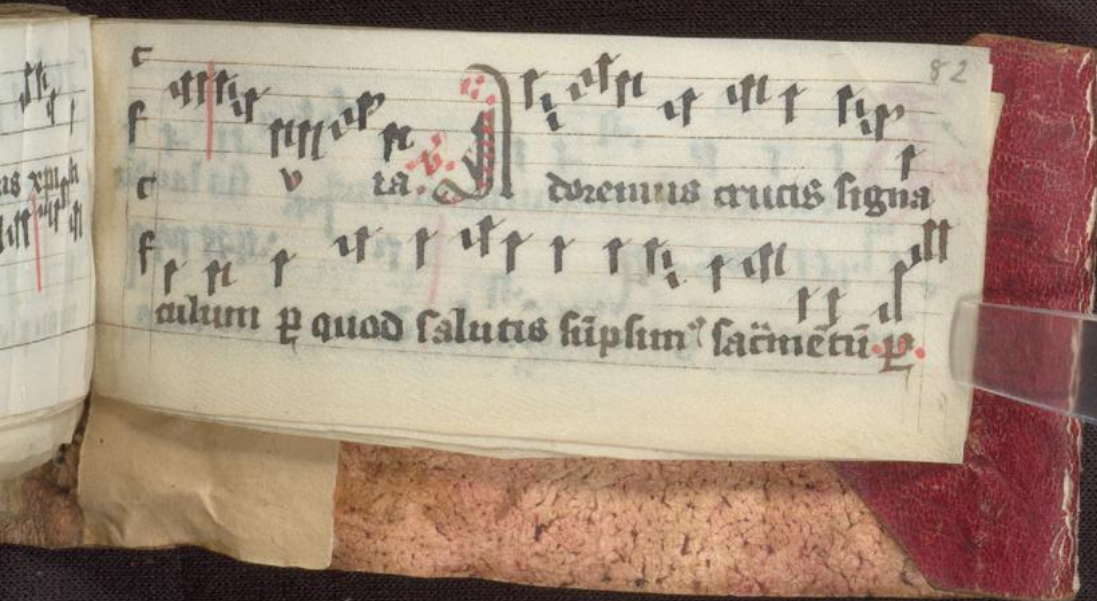 82
v ra .v. Adoremus crucis signa
culum ꝑ quod salutis sūpsimꝰ sac̄mētū .ꝑ.